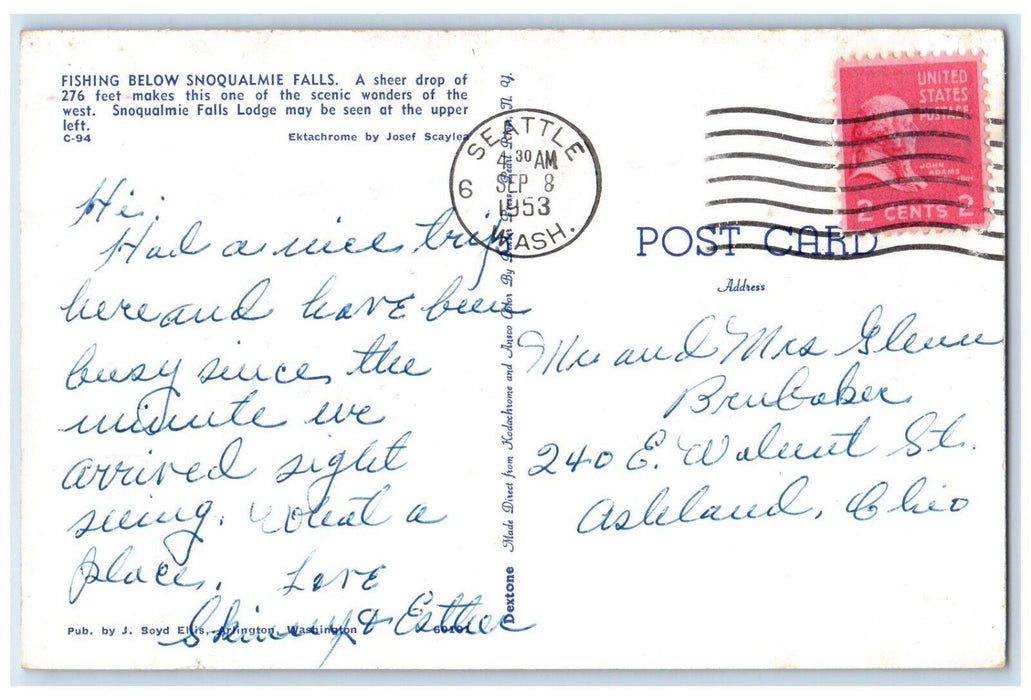 FISHING BELOW SNOQUALMIE FALLS. A sheer drop of
276 feet makes this one of the scenic wonders of the
west. Snoqualmie Falls Lodge may be seen at the upper
left.
C-94 Ektachrome by Josef Scaylea
Hi:
Had a nice trip
here and have been
busy since the
minute we
arrived sight
seeing. What a
place. Love
Skinny & Esther
Pub. by J. Boyd Ellis, Arlington, Washington 60101
Dextone Made Direct from Kodachrome and Ansco Color By Dexter Press, Pearl River, N. Y.
SEATTLE
4 30 AM
SEP 8
1953
WASH.
6
UNITED
STATES
POSTAGE
JOHN
ADAMS
2 CENTS 2
POST CARD
Address
Mr and Mrs Glenn
Brubaker
240 E. Walnut St.
Ashland, Ohio